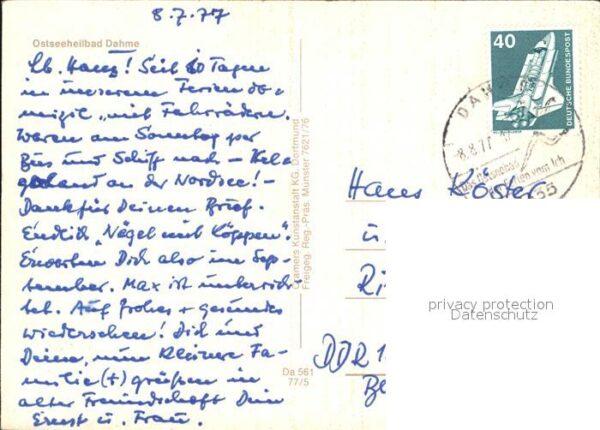 8.7.77
Ostseeheilbad Dahme
Lb. Hans! Seit 10 Tagen
in unserem Ferien do-
mizil "mit Fahrrädern.
Waren am Sonntag per
Bus und Schiff nach - Helg
goland an der Nordsee! -
Dank für Deinen Brief.
Endlich "Nägel mit Köppen".
Erwarten Dich also im Sep-
tember. Max ist unterrich
tet. Auf frohes + gesundes
Wiedersehen! Dich und
Deine, nun kleinere Fa-
milie (+) grüßen in
alter Freundschaft Dein
Ernst u. Frau.
Cramers Kunstanstalt KG, Dortmund
Freigeg. Reg.-Präs. Münster 7621/76
Da 561
77/5
40
DEUTSCHE BUNDESPOST
DAHME
-8.8.77
55
Hans Köster
u.
Ri
DDR 1
Be
privacy protection
Datenschutz